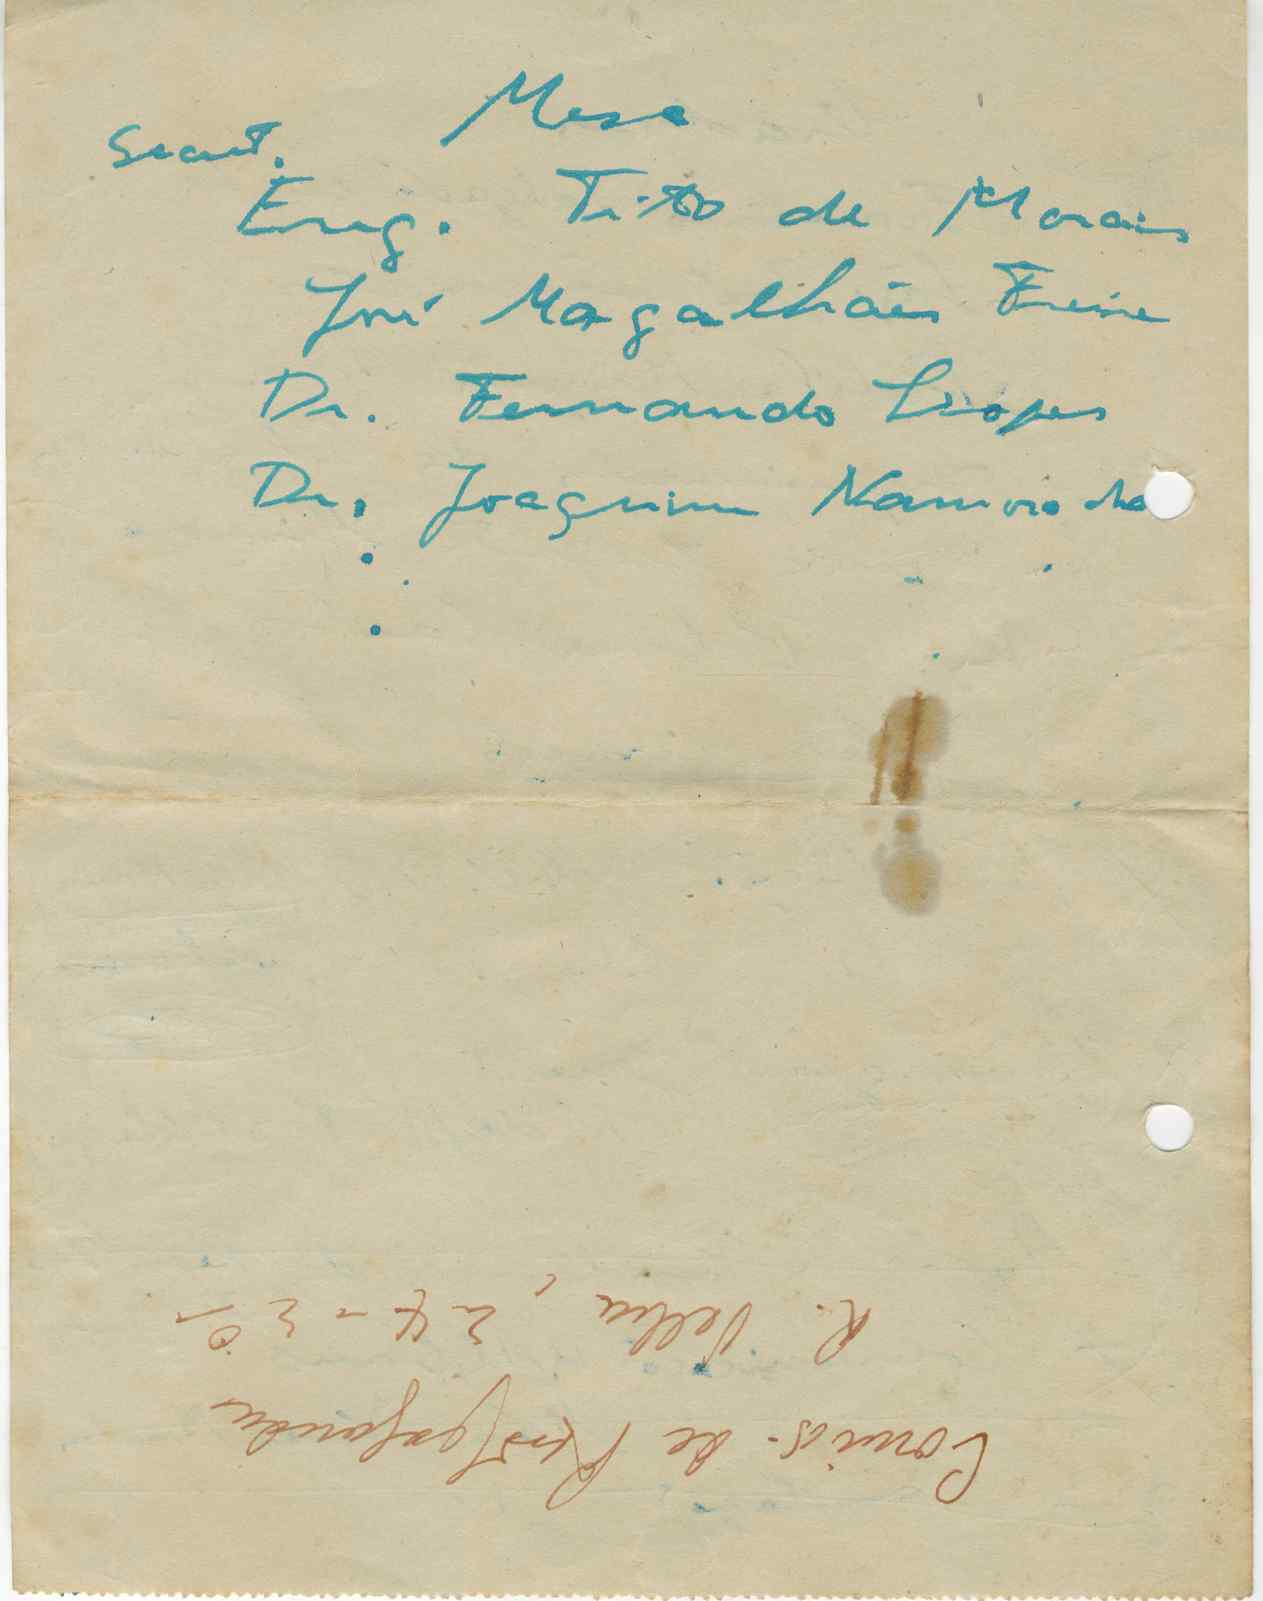 Mesa
Secret.
Eng. Tito de Morais
José Magalhães Freire
Dr. Fernando Lopes
Dr. Joaquim Namorado
Comiss. de Propaganda
R. Velha, 24 - 3º